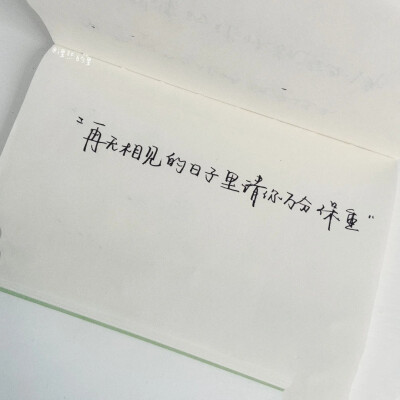 “再无相见的日子里请你万分保重”